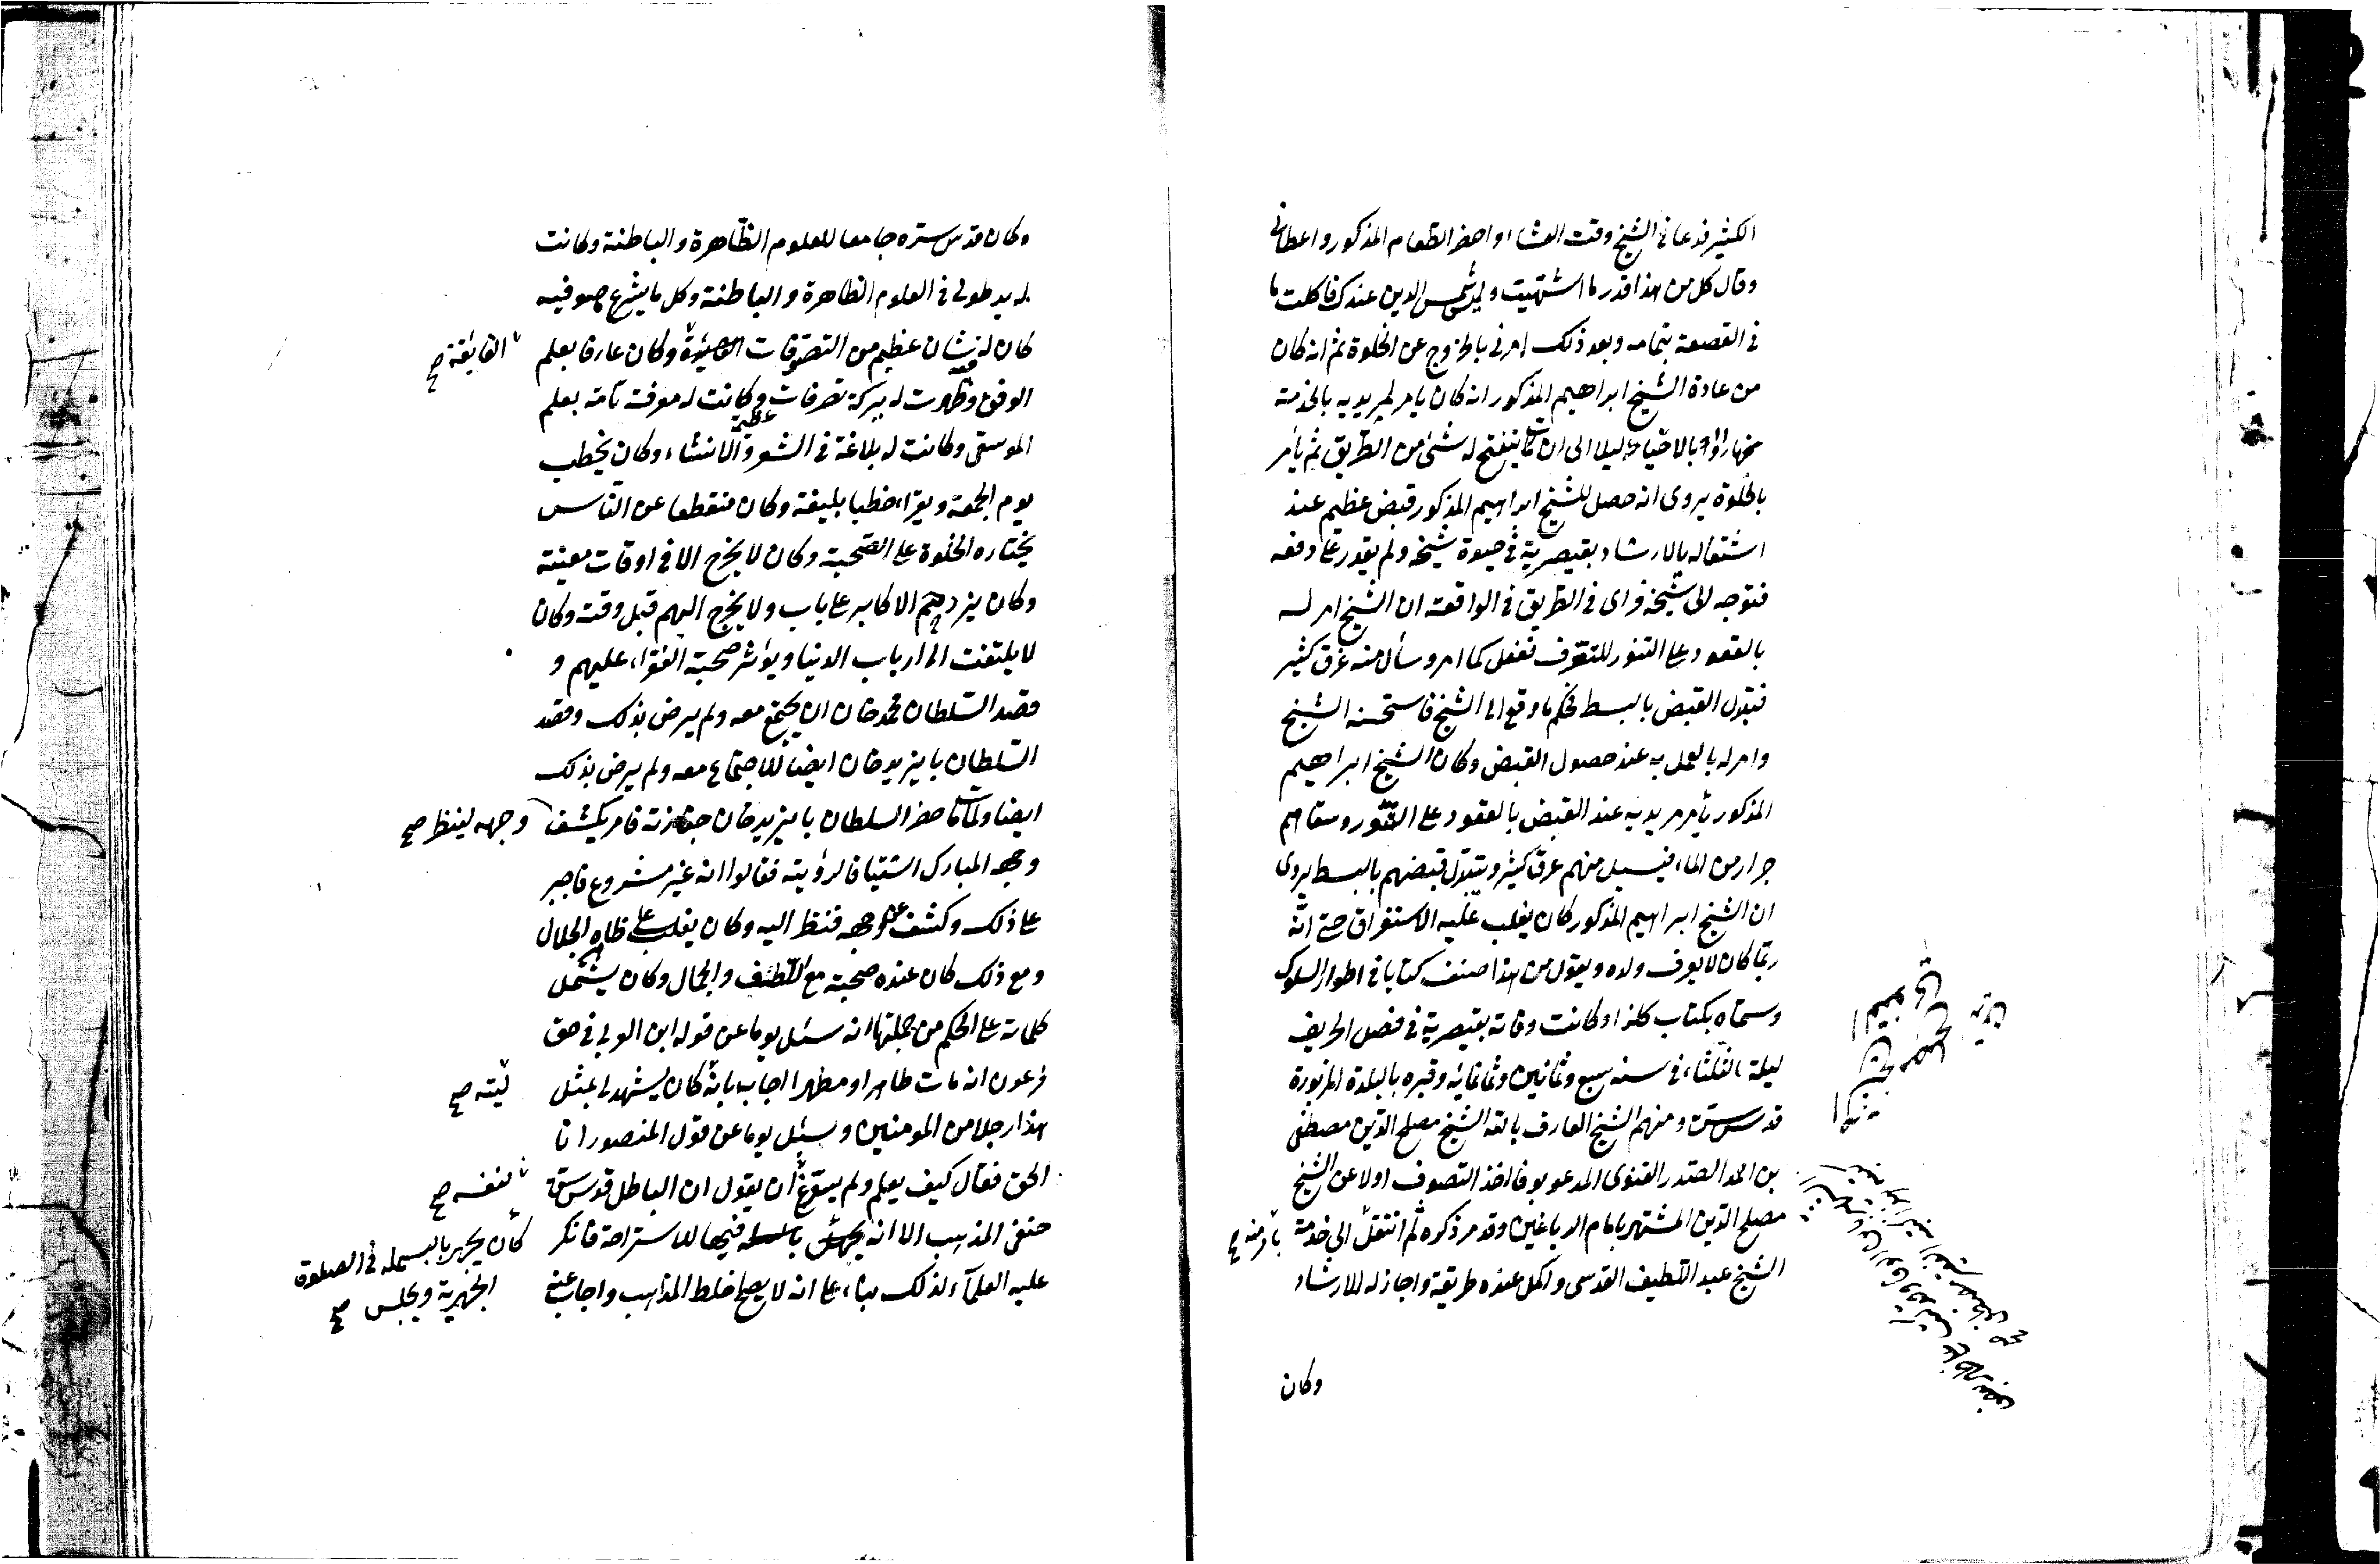 الكثير فدعاني الشيخ وقت العشاء واحضر الطعام المذكور واعطاني
وقال كل من هذا قدر ما اشتهيت وليس شمس الدين عندك فاكلت ما
في القصعة بتمامه وبعد ذلك امرني بالخروج عن الخلوة ثم انه كان
من عادة الشيخ ابراهيم المذكور انه كان يامر لمريديه بالخدمة
نهارا وبالاحياء ليلا الى ان ينفتح له شئ من الطريق ثم يأمر
بالخلوة يروى انه حصل للشيخ ابراهيم المذكور قبض عظيم عند
اشتغاله بالارشاد بقيصرية في حيوة شيخه ولم يقدر على دفعه
فتوجه الى شيخه فراى في الطريق في الواقعة ان الشيخ امر له
بالقعود على التنور للتعرق ففعل كما امر وسأل منه عرق كثير
فتبدل القبض بالبسط فحكم ما وقع الى الشيخ فاستحسنه الشيخ
وامر له بالعمل به عند حصول القبض وكان الشيخ ابراهيم
المذكور يأمر مريديه عند القبض بالقعود على التنور وسقاهم
جرار من الماء فيسيل منهم عرق كثير ويتبدل قبضهم بالبسط يروى
ان الشيخ ابراهيم المذكور كان يغلب عليه الاستغراق حتى انه
ربما كان لا يعرف ولده ويقول من هذا صنف كتابا في اطوار السلوك
وسماه بكتاب كلزا وكانت وفاته بقيصرية في فصل الخريف
ليلة الثلثاء في سنه سبع وثمانين وثمانمائه وقبره بالبلدة المزبورة
قدس سره ومنهم الشيخ العارف بالله الشيخ مصلح الدين مصطفى
بن احمد الصدر القنوى المدعو بوفا اخذ التصوف اولا عن الشيخ
مصلح الدين المشتهر بامام الدباغين وقد مر ذكره ثم انتقل الى خدمة
بامر منه صح
الشيخ عبد اللطيف القدسى واكمل عنده طريقة واجاز له للارشاد
وكان
وكان قدس سره جامعا للعلوم الظاهرة والباطنة وكانت
له يد طولى في العلوم الظاهرة والباطنة وكل ما يشرع هو فيه
كان له شان عظيم من التصرفات وكان عارفا بعلم
الفايقة صح
الوفق وظهرت له ببركة تصرفات وكانت له معرفة تامة بعلم
الموسقى وكانت له بلاغة عظيمة في الشعر والانشاء وكان يخطب
يوم الجمعة ويقراء خطبا بليغة وكان منقطعا عن الناس
يختاره الخلوة على الصحبة وكان لا يخرج الا في اوقات معينة
وكان يزدحم الاكابر على بابه ولا يخرج اليهم قبل وقته وكان
لا يلتفت الى ارباب الدنيا ويؤثر صحبة الفقراء عليهم و
قصد السلطان محمد خان ان يجتمع معه ولم يرض بذلك وقصد
السلطان بايزيد خان ايضا للاجتماع معه ولم يرض بذلك
ايضا ولما مات حضر السلطان بايزيد خان جنازته فامر بكشف
وجهه لينظر صح
وجهه المبارك اشتياقا لرؤيته فقالوا انه غير مشروع فاجبر
على ذلك وكشف عن وجهه فنظر اليه وكان يغلب على ظاهره الجلال
ومع ذلك كان عنده صحبة مع اللطف والجمال وكان يشتمل
كلماته على الحكم من جملتها انه سئل يوما عن قوله ابن العربي في حق
فرعون انه مات طاهرا ومطهرا اجاب بانه كان يشهد لى بمثل
ليته صح
هذا رجلا من المومنين وسئل يوما عن قول المنصور انا
الحق فقال كيف يعلم ولم يسوغ ان يقول ان الباطل قدس سره
لنفسه صح
حنفى المذهب الا انه فيها للاستراحة فانكر
كان يجهر بالبسمله في الصلوة
الجهرية ويجلس صح
عليه العلماء لذلك بناء على انه لا يصح خلط المذاهب واجاب عنه